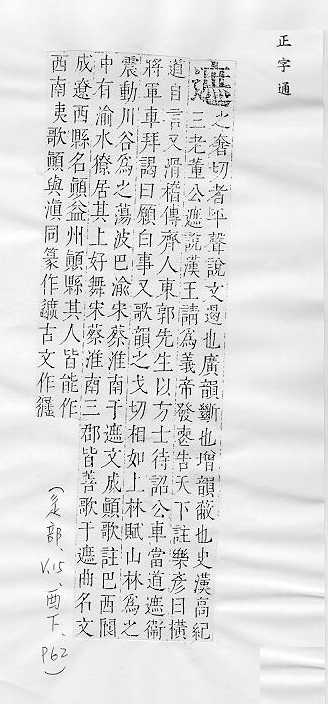 正字通
遮之奢切者平聲說文遏也廣韻斷也增韻蔽也史漢高紀
三老董公遮說漢王請爲義帝發喪告天下註樂彥曰橫
道自言又滑稽傳齊人東郭先生以方士待詔公車當道遮衞
將軍車拜謁曰願白事又歌韻之戈切相如上林賦山林爲之
震動川谷爲之蕩波巴渝宋蔡淮南于遮文成顚歌註巴西閬
中有渝水獠居其上好舞宋蔡淮南三郡皆善歌于遮曲名文
成遼西縣名顚益州顚縣其人皆能作
西南夷歌顚與滇同篆作古文作
(辵部、V.15、酉下、P62)